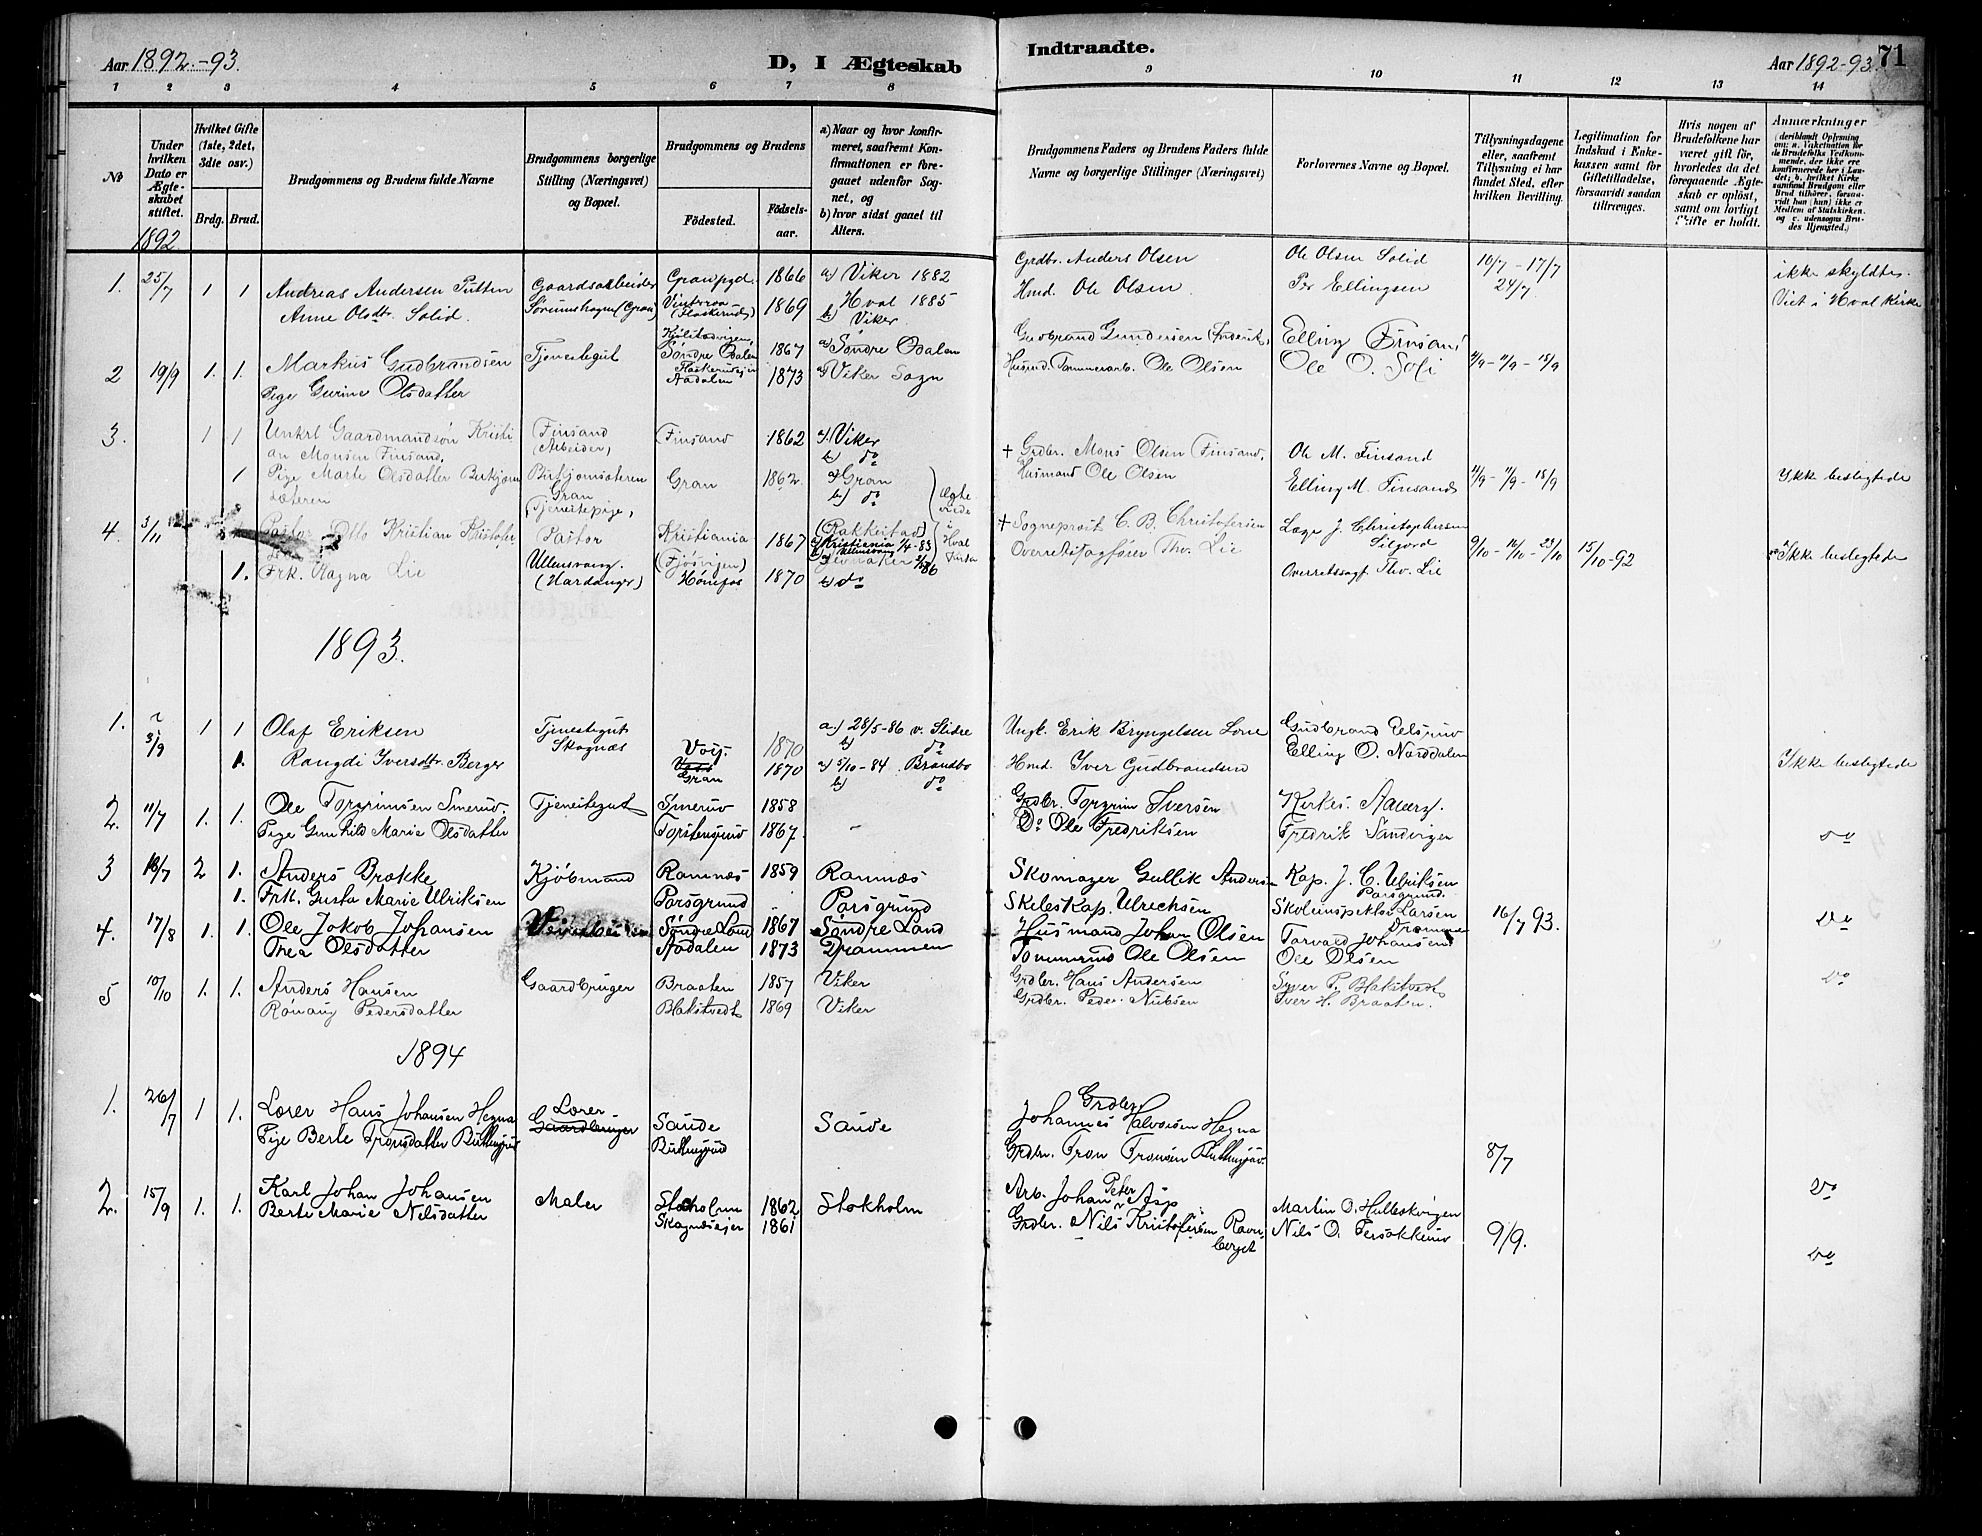 Aar 1892.-93.
D, I Ægteskab
Indtraadte.
Aar 1892-93.
71
1 2 3 4 5 6 7 8 9 10 11 12 13 14
No
Under hvilken Dato er Ægteskabet stiftet.
Hvilket Gifte (1ste, 2det, 3die osv.)
Brdg. Brud.
Brudgommens og Brudens fulde Navne
Brudgommens borgerlige Stilling (Næringsvei) og Bopæl.
Brudgommens og Brudens
Fødested.
Fødselsaar.
a) Naar og hvor konfirmeret, saafremt Konfirmationen er foregaaet udenfor Sognet, og
b) hvor sidst gaaet til Alters.
Brudgommens Faders og Brudens Faders fulde Navne og borgerlige Stillinger (Næringsvei)
Forlovernes Navne og Bopæl.
Tillysningsdagene eller, saafremt Tillysning ei har fundet Sted, efter hvilken Bevilling.
Legitimation for Indskud i Enkekassen samt for Giftetilladelse, forsaavidt saadan tiltrænges.
Hvis nogen af Brudefolkene har været gift før, hvorledes da det foregaaende Ægteskab er opløst, samt om lovligt Skifte er holdt.
Anmærkninger
(deriblandt Oplysning om: a. Vakcination for de Brudefolks Vedkommende, der ikke ere konfirmerede her i Landet; b. hvilket Kirkesamfund Brudgom eller Brud tilhører, forsaavidt han (hun) ikke er Medlem af Statskirken. og c. udensogns Brudes Hjemsted.)
1892
1. 25/7 1 1 Andreas Andersen Putten Gaardsarbeider Granpgd. 1866 a) Viker 1882 Grdbr. Anders Olsen Ole Olsen Solid 10/7 - 17/7 ikke skyldte.
Anne Olsdtr. Solid. (Gran) 1869 Hval 1885 Hmd. Ole Olsen Per Ellingsen 24/7 Viet i Hval Kirke
b) Viker
2 19/9 1. 1. Markus Gudbrandsen Tjenestegut Søndre Odalen 1867 a) Søndre Odalen Gudbrand Gundersen Elling Finsand 4/9 - 11/9 - 18/9
Pige Gurine Olsdatter Aadalen 1873 a) Viker Sogn Ole Olsen Ole O. Soli
3. 1 1 Unkrl Gaardmandsøn Kristi Finsand Finsand 1862 a) Viker + Grdbr. Mons Olsen Finsand. Ole M. Finsand
an Monsen Finsand, (Arbeider) b) do
1 Pige Marte Olsdatter Gran 1862 a) Gran Husmand Ole Olsen Elling M. Finsand 4/9 - 11/9 - 18/9 Ikke beslegtede
sæteren Gran b) do
Tjenestepige,
4. 3/11 Pastor Otto Kristian Kristofersen Pastor Kristiania 1867 (Rakkestad) + Sogneprest C. B. Christofersen Læge J. Christophersen 9/10 - 16/10 - 23/10 15/10-92 Ikke beslegtede
Kristiania 1/4-83 Hval
1. Frk. Magna Lie Ullensvang. Hønefos 1870 b) do Overretssagfører Thv. Lie Overretssagf Thv. Lie
(Hardanger)
1893.
1. 3/9 1 1 Olaf Eriksen Tjenestegut 1870 a) 28/5-86 v. Slidre Ungk. Erik Bryngelsen Lome Gudbrand
Skagnæs b) do Elling O. Norddalen
1. Rangdi Iversdtr. Berger Gran 1870 a) 5/10-84 Brandbo Hmd. Iver Gudbrandsen Ikke beslegtede
b) do
2. 11/7 1. 1. Ole Torgrimsen Smerud. Tjenestegut Smerud 1858 Grdbr. Torgrim Iversen Kirkes. Aaberg.
Pige Gunhild Marie Olsdatter Torstensrud 1867. Do Ole Fredriksen Fredrik Sandvigen do
3 18/7 2 1. Anders Brække Kjøbmand Ramnæs 1859 Ramnæs Skomager Gullik Andersen Kap. J. C. Ulriksen
Porsgrund.
1. Frk. Gusta Marie Ulriksen Porsgrund Porsgrund Skibskap. Ulrechsen Skoleinspektør Larsen do
Drammen
4. 17/8 1. 1. Ole Jakob Johansen Søndre Land 1867 Søndre Land Husmand Johan Olsen Torvald Johansen 16/7 93.
Thea Olsdatter Aadalen 1873 Drammen Ole Olsen Ole Olsen
5 10/10 1. 1. Anders Hansen Gaardbruger Braaten 1857 Viker Grdbr. Hans Andersen Syver P. Blakstvedt do
Rønaug Pedersdatter Blakstvedt 1869 Viker Grdbr. Peder Nilsen Iver H. Braaten.
1894
1. 26/7 1 1. Lærer Hans Johansen Hegna Lærer Saude Saude Grdbr.
Johannes Halvorsen Hegna
Pige Berte Tronsdatter Gaardbruger Grdbr. Tron Tronsen 8/7
2. 15/9 1. 1. Karl Johan Johansen Maler Stokholm 1862 Stokholm Arb. Johan Peter Asp Martin O. Hulleskvigen do
Berte Marie Nilsdatter Skagnæseier 1861 Grdbr. Nils Kristofersen Ravnberget Nils O. 9/9.
do